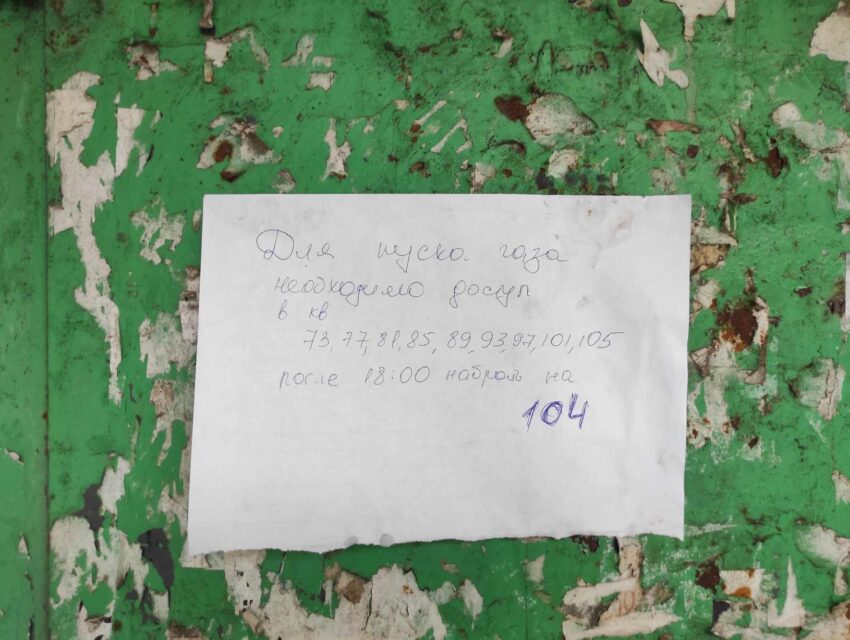 Для пуска газа
необходимо доступ
в кв
73, 77, 81, 85, 89, 93, 97, 101, 105
после 18:00 набрать на
104